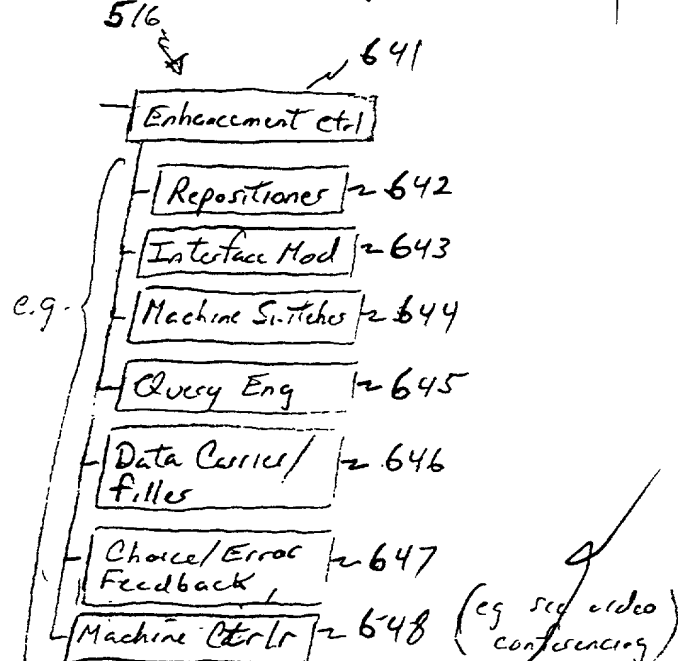 516
641
Enhancement ctrl
Repositioner 642
Interface Mod 643
e.g.
Machine Switcher 644
Query Eng 645
Data Carrier/ 646
filler
Choice/Error 647
Feedback
Machine Ctrlr 648 (eg video
conferencing)